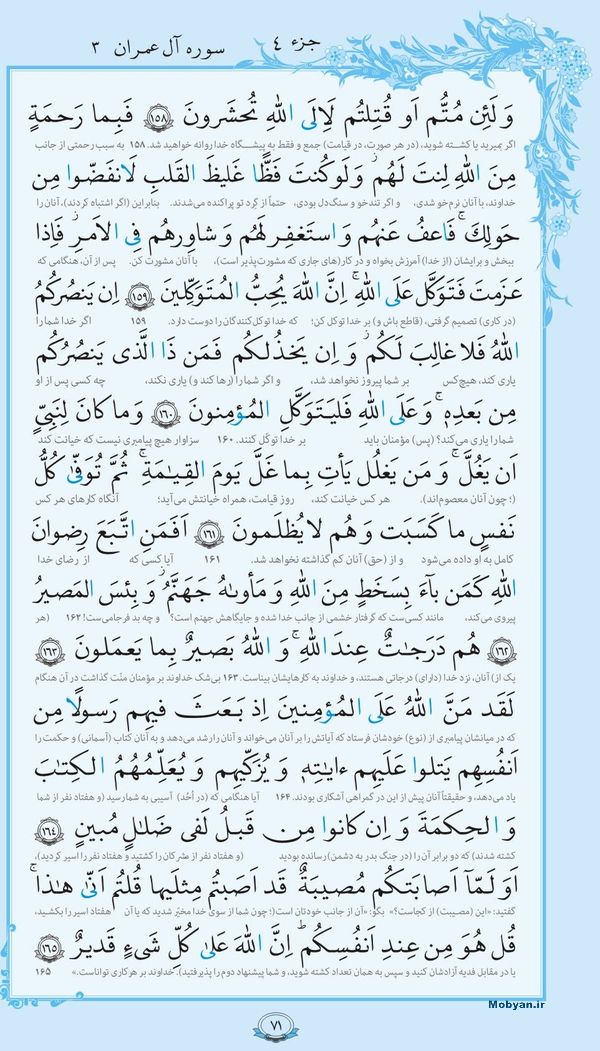 جزء ٤
سوره آل عمران ٣
وَ لَئِن مُتُّم اَو قُتِلتُم لَاِلَى اللهِ تُحشَرونَ ١٥٨ فَبِما رَحمَةٍ
اگر بمیرید یا کشته شوید، (در هر صورت، در قیامت) جمع و فقط به پیشگاه خدا روانه خواهید شد. ۱۵۸ به سبب رحمتی از جانب
مِنَ اللهِ لِنتَ لَهُم وَ لَو كُنتَ فَظًّا غَليظَ القَلبِ لَانفَضّوا مِن
خداوند، با آنان نرم‌خو شدی، و اگر تندخو و سنگ‌دل بودی، حتماً از گرد تو پراکنده می‌شدند. بنابراین (اگر اشتباه کردند)، آنان را
حَولِكَ فَاعفُ عَنهُم وَ استَغفِر لَهُم وَ شاوِرهُم فِى الاَمرِ فَاِذا
ببخش و برایشان (از خدا) آمرزش بخواه و در کار(های جاری که مشورت‌پذیر است)، با آنان مشورت کن. پس از آن، هنگامی که
عَزَمتَ فَتَوَكَّل عَلَى اللهِ اِنَّ اللهَ يُحِبُّ المُتَوَكِّلينَ ١٥٩ اِن يَنصُركُمُ
(در کاری) تصمیم گرفتی، (قاطع باش و) بر خدا توکل کن؛ که خدا توکل‌کنندگان را دوست دارد. ۱۵۹ اگر خدا شما را
اللهُ فَلا غالِبَ لَكُم وَ اِن يَخذُلكُم فَمَن ذَا الَّذى يَنصُرُكُم
یاری کند، هیچ‌کس بر شما پیروز نخواهد شد، و اگر شما را (رها کند و) یاری نکند، چه کسی پس از او
مِن بَعدِهِ وَ عَلَى اللهِ فَليَتَوَكَّلِ المُؤمِنونَ ١٦٠ وَ ما كانَ لِنَبِىٍّ
شما را یاری می‌کند؟ (پس) مؤمنان باید بر خدا توکّل کنند. ۱۶۰ سزاوار هیچ پیامبری نیست که خیانت کند
اَن يَغُلَّ وَ مَن يَغلُل يَأتِ بِما غَلَّ يَومَ القِيـٰمَةِ ثُمَّ تُوَفّىٰ كُلُّ
(؛ چون آنان معصوم‌اند). هر کس خیانت کند، روز قیامت، همراه خیانتش می‌آید؛ آنگاه کارهای هر کس
نَفسٍ ما كَسَبَت وَ هُم لا يُظلَمونَ ١٦١ اَفَمَنِ اتَّبَعَ رِضوانَ
کامل به او داده می‌شود و از (حق) آنان کم گذاشته نخواهد شد. ۱۶۱ آیا کسی که از رضای خدا
اللهِ كَمَن باۤءَ بِسَخَطٍ مِنَ اللهِ وَ مَأوىٰهُ جَهَنَّمُ وَ بِئسَ المَصيرُ
پیروی می‌کند، مانند کسی‌ست که گرفتار خشمی از جانب خدا شده و جایگاهش جهنم است؟ و چه بد فرجامی‌ست! ۱۶۲ (هر
١٦٢ هُم دَرَجاتٌ عِندَ اللهِ وَ اللهُ بَصيرٌ بِما يَعمَلونَ ١٦٣
یک از) آنان، نزد خدا (دارای) درجاتی هستند، و خداوند به کارهایشان بیناست. ۱۶۳ بی‌شک خداوند بر مؤمنان منّت گذاشت در آن هنگام
لَقَد مَنَّ اللهُ عَلَى المُؤمِنينَ اِذ بَعَثَ فيهِم رَسولًا مِن
که در میانشان پیامبری از (نوع) خودشان فرستاد که آیاتش را بر آنان می‌خواند و آنان را رشد می‌دهد و به آنان کتاب (آسمانی) و حکمت را
اَنفُسِهِم يَتلوا عَلَيهِم ءاياتِهِ وَ يُزَكّيهِم وَ يُعَلِّمُهُمُ الكِتٰبَ
یاد می‌دهد، و حقیقتاً آنان پیش از این در گمراهی آشکاری بودند. ۱۶۴ آیا هنگامی که (در اُحُد) آسیبی به شما رسید (و هفتاد نفر از شما
وَ الحِكمَةَ وَ اِن كانوا مِن قَبلُ لَفى ضَلـٰلٍ مُبينٍ ١٦٤
کشته شدند) که دو برابر آن را (در جنگ بدر به دشمن) رسانده بودید (و هفتاد نفر از مشرکان را کشتید و هفتاد نفر را اسیر کردید)،
اَوَ لَمّاۤ اَصابَتكُم مُصيبَةٌ قَد اَصَبتُم مِثلَيها قُلتُم اَنّىٰ هـٰذا
گفتید: «این (مصیبت) از کجاست؟» بگو: «آن از جانب خودتان است(؛ چون شما از سوی خدا مخیّر شدید که یا آن هفتاد اسیر را بکشید،
قُل هُوَ مِن عِندِ اَنفُسِكُم اِنَّ اللهَ عَلىٰ كُلِّ شَىءٍ قَديرٌ ١٦٥
یا در مقابل فدیه آزادشان کنید و سپس به همان تعداد کشته شوید، و شما پیشنهاد دوم را پذیرفتید). خداوند بر هر کاری تواناست.» ۱۶۵
Mobyan.ir
٧١